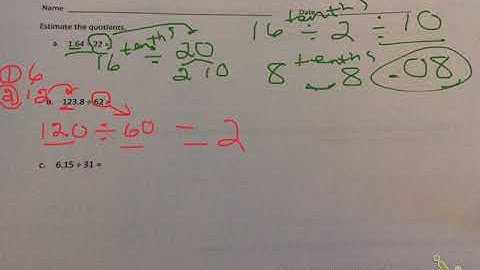 Name
Estimate the quotients.
a. 1.64 ÷ 22 =
16 tenths ÷ 20
2 10
16 tenths ÷ 2 ÷ 10
8 tenths
8
.08
① 6
② 12
b. 123.8 ÷ 62 =
120 ÷ 60 = 2
c. 6.15 ÷ 31 =